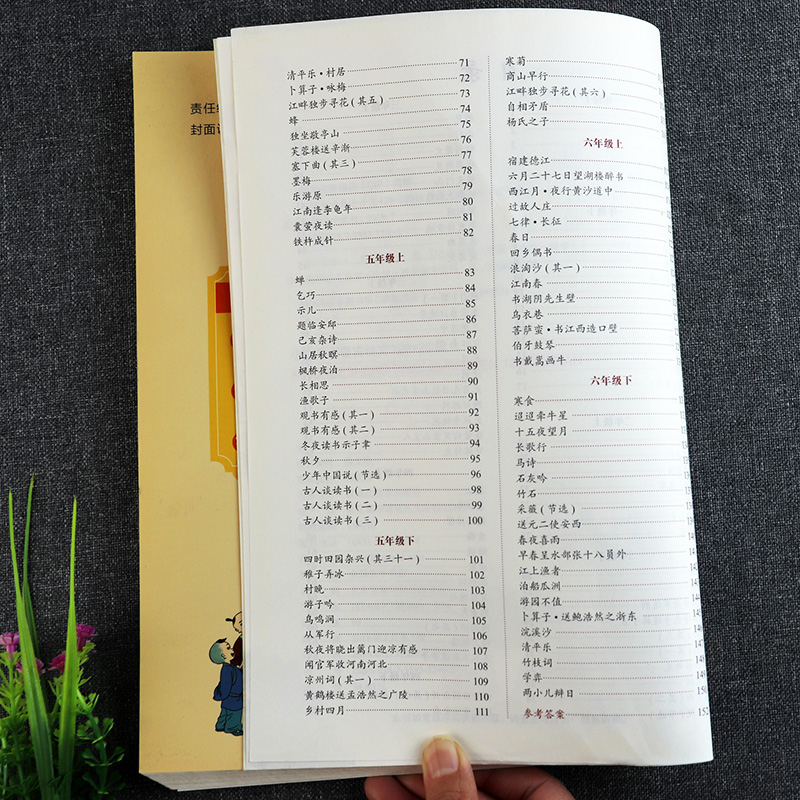 责任
封面
清平乐·村居 71
卜算子·咏梅 72
江畔独步寻花(其五) 73
蜂 74
独坐敬亭山 75
芙蓉楼送辛渐 76
塞下曲(其三) 77
墨梅 78
乐游原 79
江南逢李龟年 80
囊萤夜读 81
铁杵成针 82
五年级上
蝉 83
乞巧 84
示儿 85
题临安邸 86
己亥杂诗 87
山居秋暝 88
枫桥夜泊 89
长相思 90
渔歌子 91
观书有感(其一) 92
观书有感(其二) 93
冬夜读书示子聿 94
秋夕 95
少年中国说(节选) 96
古人谈读书(一) 98
古人谈读书(二) 99
古人谈读书(三) 100
五年级下
四时田园杂兴(其三十一) 101
稚子弄冰 102
村晚 103
游子吟 104
鸟鸣涧 105
从军行 106
秋夜将晓出篱门迎凉有感 107
闻官军收河南河北 108
凉州词(其一) 109
黄鹤楼送孟浩然之广陵 110
乡村四月 111
寒菊
商山早行
江畔独步寻花(其六)
自相矛盾
杨氏之子
六年级上
宿建德江
六月二十七日望湖楼醉书
西江月·夜行黄沙道中
过故人庄
七律·长征
春日
回乡偶书
浪淘沙(其一)
江南春
书湖阴先生壁
乌衣巷
菩萨蛮·书江西造口壁
伯牙鼓琴
书戴嵩画牛
六年级下
寒食
迢迢牵牛星
十五夜望月
长歌行
马诗
石灰吟
竹石
采薇(节选)
送元二使安西
春夜喜雨
早春呈水部张十八員外
江上渔者
泊船瓜洲
游园不值
卜算子·送鲍浩然之浙东
浣溪沙
清平乐
竹枝词
学弈
两小儿辩日
参考答案